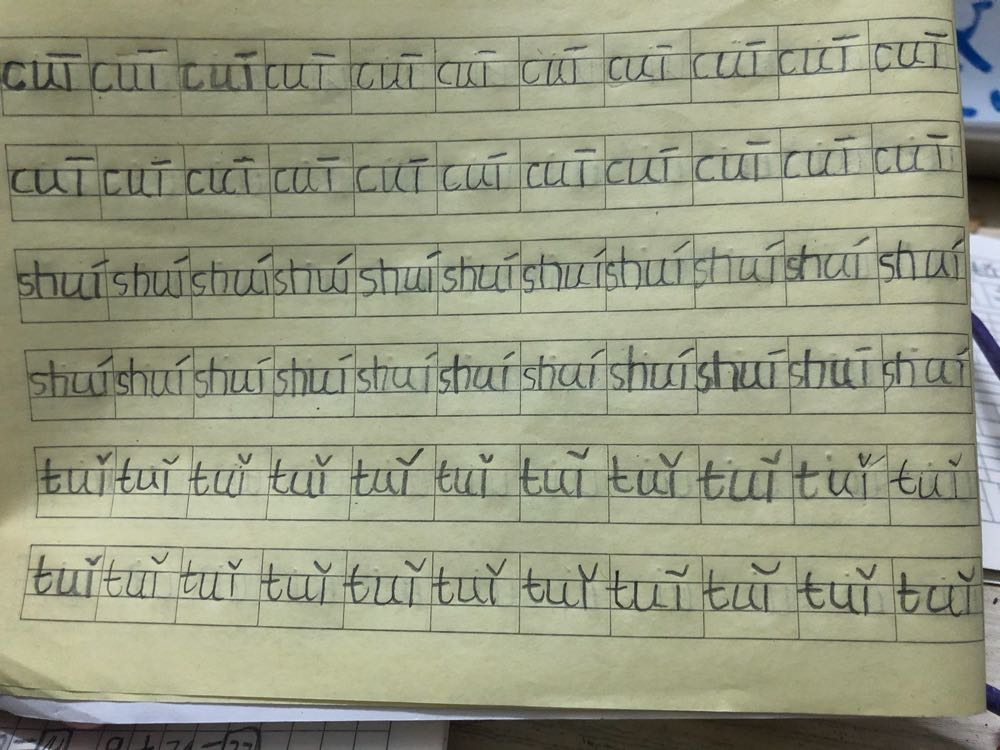 cuī cuī cuī cuī cuī cuī cuī cuī cuī cuī cuī
cuī cuī cuī cuī cuī cuī cuī cuī cuī cuī cuī
shuí shuí shuí shuí shuí shuí shuí shuí shuí shuí shuí
shuí shuí shuí shuí shuí shuí shuí shuí shuí shuí shuí
tuǐ tuǐ tuǐ tuǐ tuǐ tuǐ tuǐ tuǐ tuǐ tuǐ tuǐ
tuǐ tuǐ tuǐ tuǐ tuǐ tuǐ tuǐ tuǐ tuǐ tuǐ tuǐ